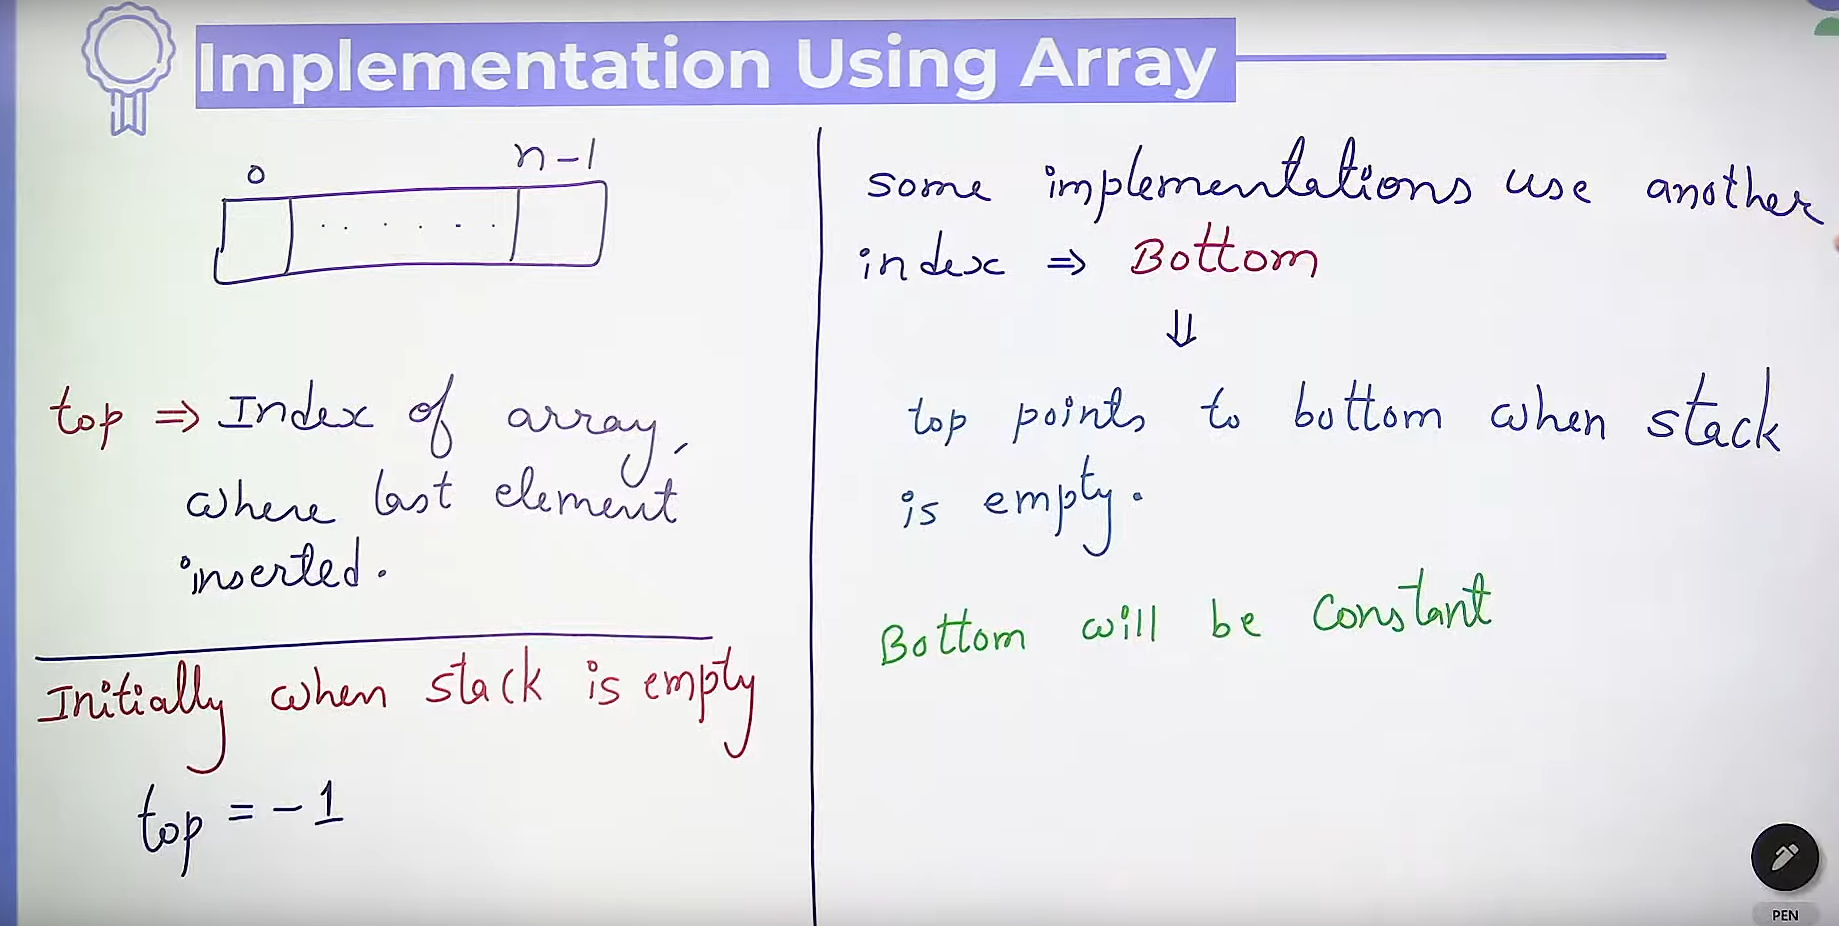 Implementation Using Array
0
n-1
top ⇒ Index of array,
where last element
inserted.
Initially when stack is empty
top = -1
some implementations use another
index ⇒ Bottom
⇓
top points to bottom when stack
is empty.
Bottom will be constant
PEN